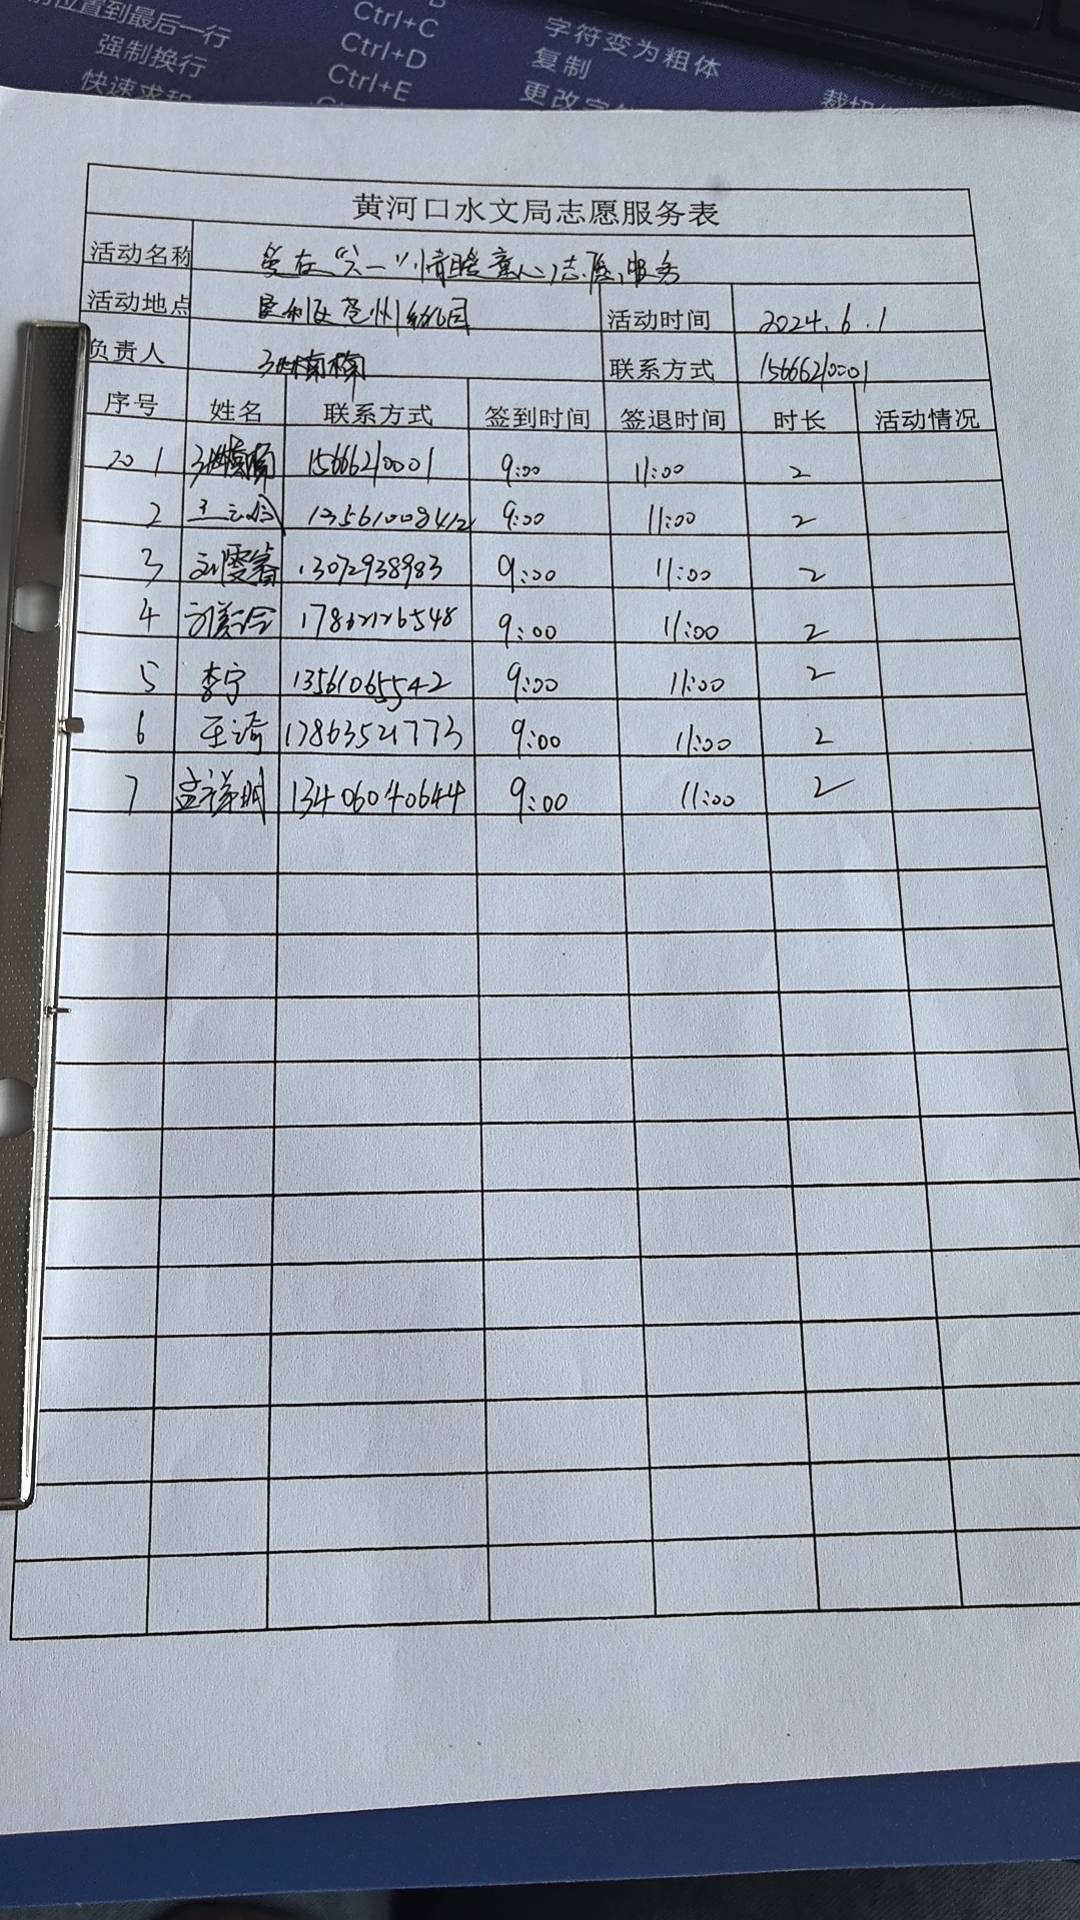 位置到最后一行
强制换行
快速求和
Ctrl+C
Ctrl+D
Ctrl+E
字符变为粗体
复制
更改字
裁切
黄河口水文局志愿服务表
活动名称 爱在“六一”情暖童心志愿服务
活动地点 垦利区 幼儿园 活动时间 2024.6.1
负责人 楠楠 联系方式 15666210001
序号 姓名 联系方式 签到时间 签退时间 时长 活动情况
1 15666210001 9:00 11:00 2
2 13561008412 9:00 11:00 2
3 刘雯睿 13072938983 9:00 11:00 2
4 17862126548 9:00 11:00 2
5 李宁 13561065542 9:00 11:00 2
6 王涛 17863521773 9:00 11:00 2
7 孟祥明 13406040644 9:00 11:00 2